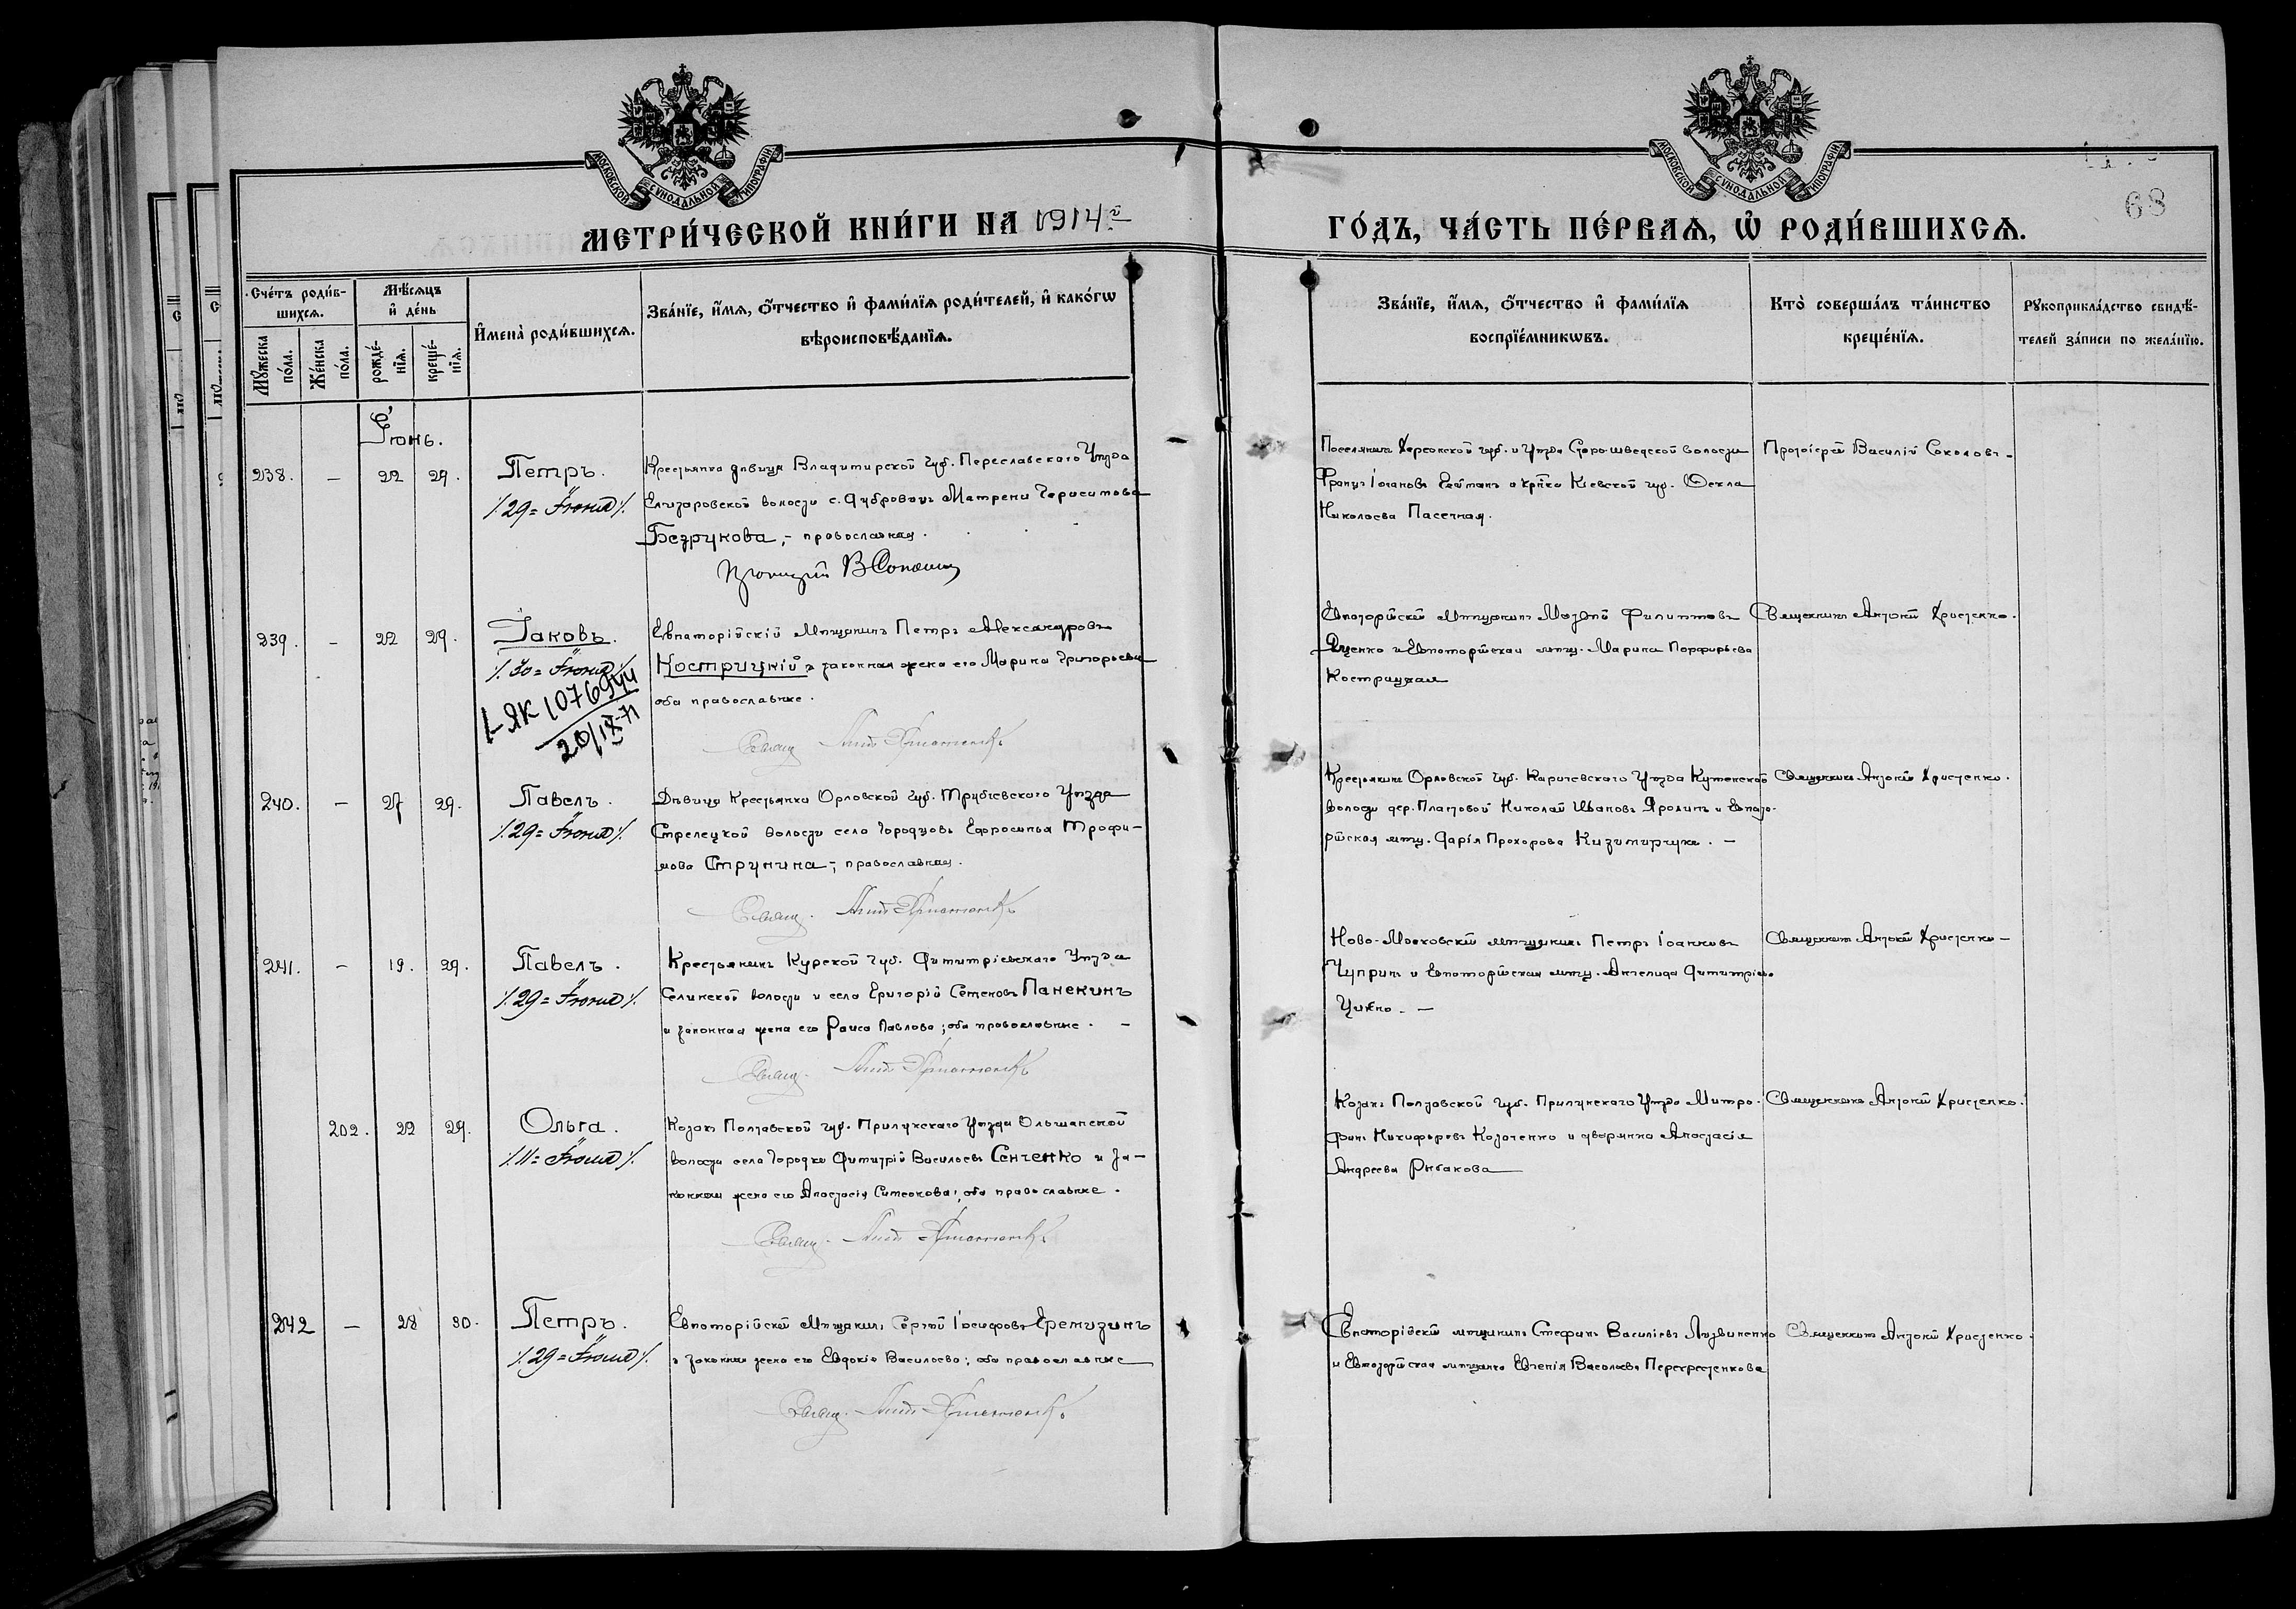 МОСКОВСКОЙ СУНОДАЛЬНОЙ ТИПОГРАФІИ
МЕТРИ́ЧЕСКОЙ КНИ́ГИ НА 1914й
Сче́тъ роди́в-
шихсѧ.
Мꙋ́жеска по́ла.
Же́нска по́ла.
Мѣ́сѧцъ
и҆ де́нь
рожде́-
нїѧ.
креще́-
нїѧ.
И҆мена̀ роди́вшихсѧ.
Зва́нїе, и҆́мѧ, ѻ҆́тчество и҆ фами́лїѧ роди́телей, и҆ како́гѡ
вѣроисповѣ́данїѧ.
Іюнь.
238. – 22 29.
Петръ.
/.29 = Іюня/.
Крестьянка девица Владимирской губ. Переславскаго Уезда
Елизаровской волости с. Дубровицъ Матрена Герасимова
Безрукова, – православная.
239. – 22 29.
Іаковъ.
/.30 = Іюня/.
I-ЯК 1076944
20/IX-71
Евпаторійскій Мѣщанинъ Петръ Александровъ
Кострицкій и законная жена его Марина Григорьева
оба православные.
Свящ. Ант. Христенко
240. – 27 29.
Павелъ.
/.29 = Іюня/.
Дѣвица Крестьянка Орловской губ. Трубчевскаго Уезда
Стрелецкой волости села Городцовъ Ефросинья Трофи-
мова Струнина, – православная.
Свящ. Ант. Христенко
241. – 19. 29.
Павелъ.
/.29 = Іюня/.
Крестьянинъ Курской губ. Димитріевскаго Уезда
Селинской волости и села Григорій Семеновъ Панекинъ
и законная жена его Раиса Павлова; оба православные. –
Свящ. Ант. Христенко
202. 22 29.
Ольга.
/.11 = Іюля/.
Козакъ Полтавской губ. Прилукскаго Уезда Ольшанской
волости села Городка Димитрій Васильевъ Сенченко и за-
конная жена его Анастасія Симеонова; оба православные.
Свящ. Ант. Христенко
242 – 28 30.
Петръ.
/.29 = Іюня/.
Евпаторійскій Мѣщанинъ Сергѣй Іосифовъ Еремизинъ
и законная жена его Евдокія Васильева; оба православные
Свящ. Ант. Христенко
МОСКОВСКОЙ СУНОДАЛЬНОЙ ТИПОГРАФІИ
68
ГО́ДЪ, ЧА́СТЬ ПЕ́РВАѦ, Ѡ҆ РОДИ́ВШИХСѦ.
Зва́нїе, и҆́мѧ, ѻ҆́тчество и҆ фами́лїѧ
воспрїе́мникѡвъ.
Кто̀ соверша́лъ та́инство
креще́нїѧ.
Рꙋкоприкла́дство свидѣ́-
телей за́писи по жела́нїю.
Поселянинъ Херсонской губ. и Уезда Старошведской волости
Францъ Іогановъ и Кр-ка Кіевской губ. Фекла
Николаева Пасечная.
Протоіерей Василій Соколовъ –
Евпаторійскій Мѣщанинъ Матѳей Филипповъ
Яценко и Евпаторійская мѣщ. Марина Порфирьева
Кострицкая
Священникъ Антоній Христенко.
Крестьянинъ Орловской губ. Карачевскаго Уезда
волости дер. Николай Ивановъ Яролинъ и Евпато-
рійская мѣщ. Дарія Прохорова Кизимирчукъ. –
Священникъ Антоній Христенко.
Ново-Московскій мѣщанинъ Петръ Іоанновъ
Чупринъ и Евпаторійская мѣщ. Ангелида Димитріева
Священникъ Антоній Христенко –
Козакъ Полтавской губ. Прилукскаго Уезда Митро-
фанъ Никифоровъ Козаченко и дворянка Анастасія
Андреева Рыбакова
Священникъ Антоній Христенко.
Евпаторійскій мѣщанинъ Стефанъ Васильевъ Литвиненко
и Евпаторійская мѣщанка Евгенія Васильева Перехрестенкова
Священникъ Антоній Христенко.